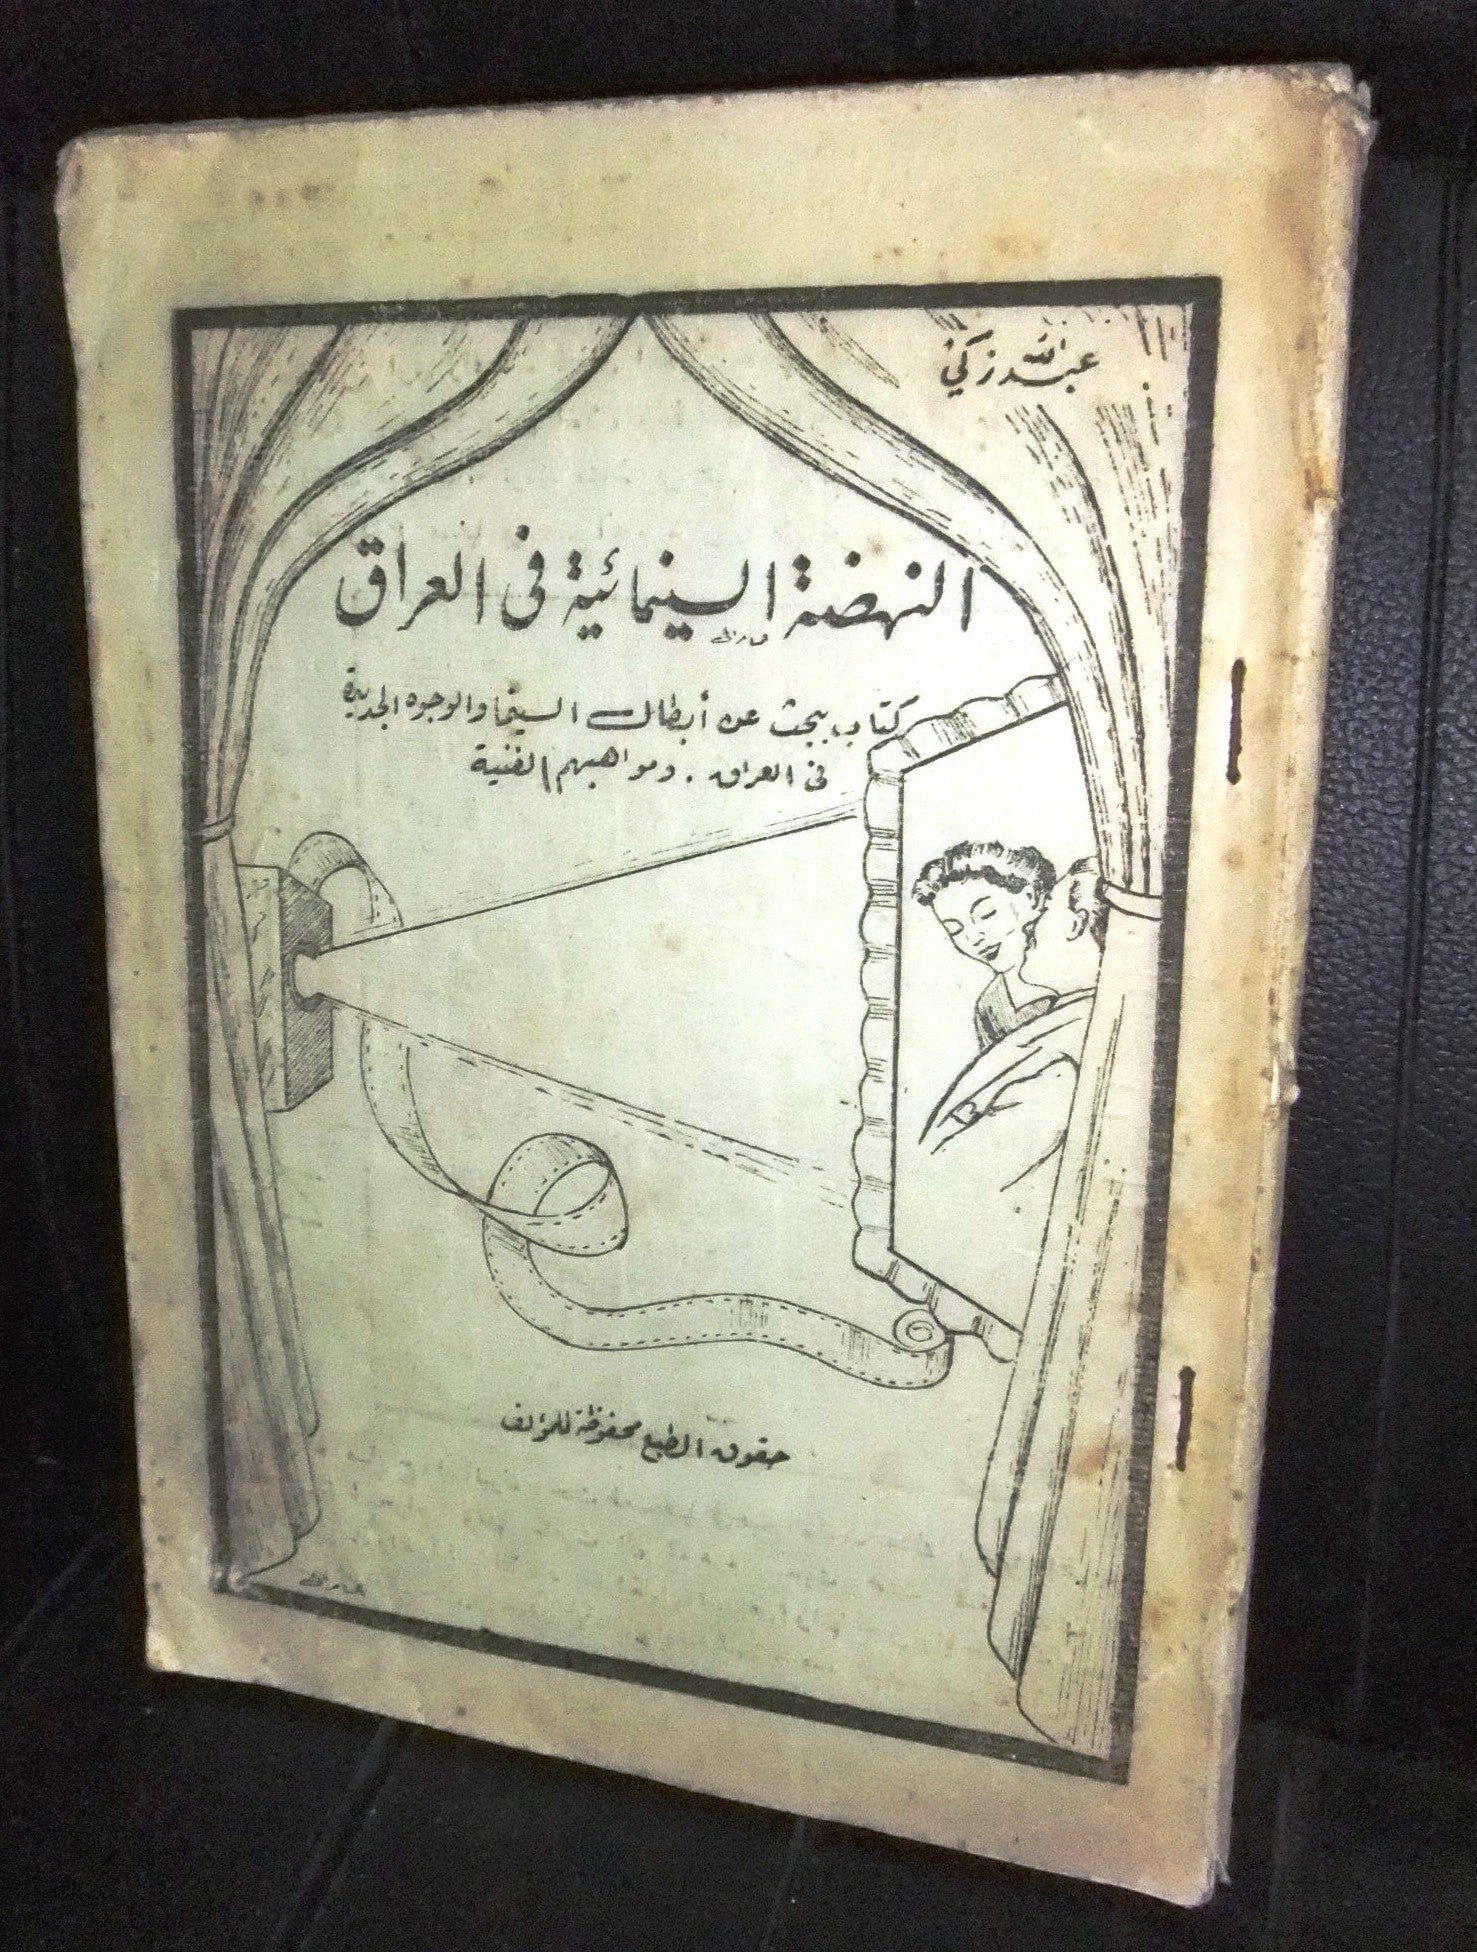 عبدالله زكي
النهضة السينمائية في العراق
كتاب يبحث عن أبطال السينما والوجوه الجديدة
في العراق . ومواهبهم الفنية
حقوق الطبع محفوظة للمؤلف